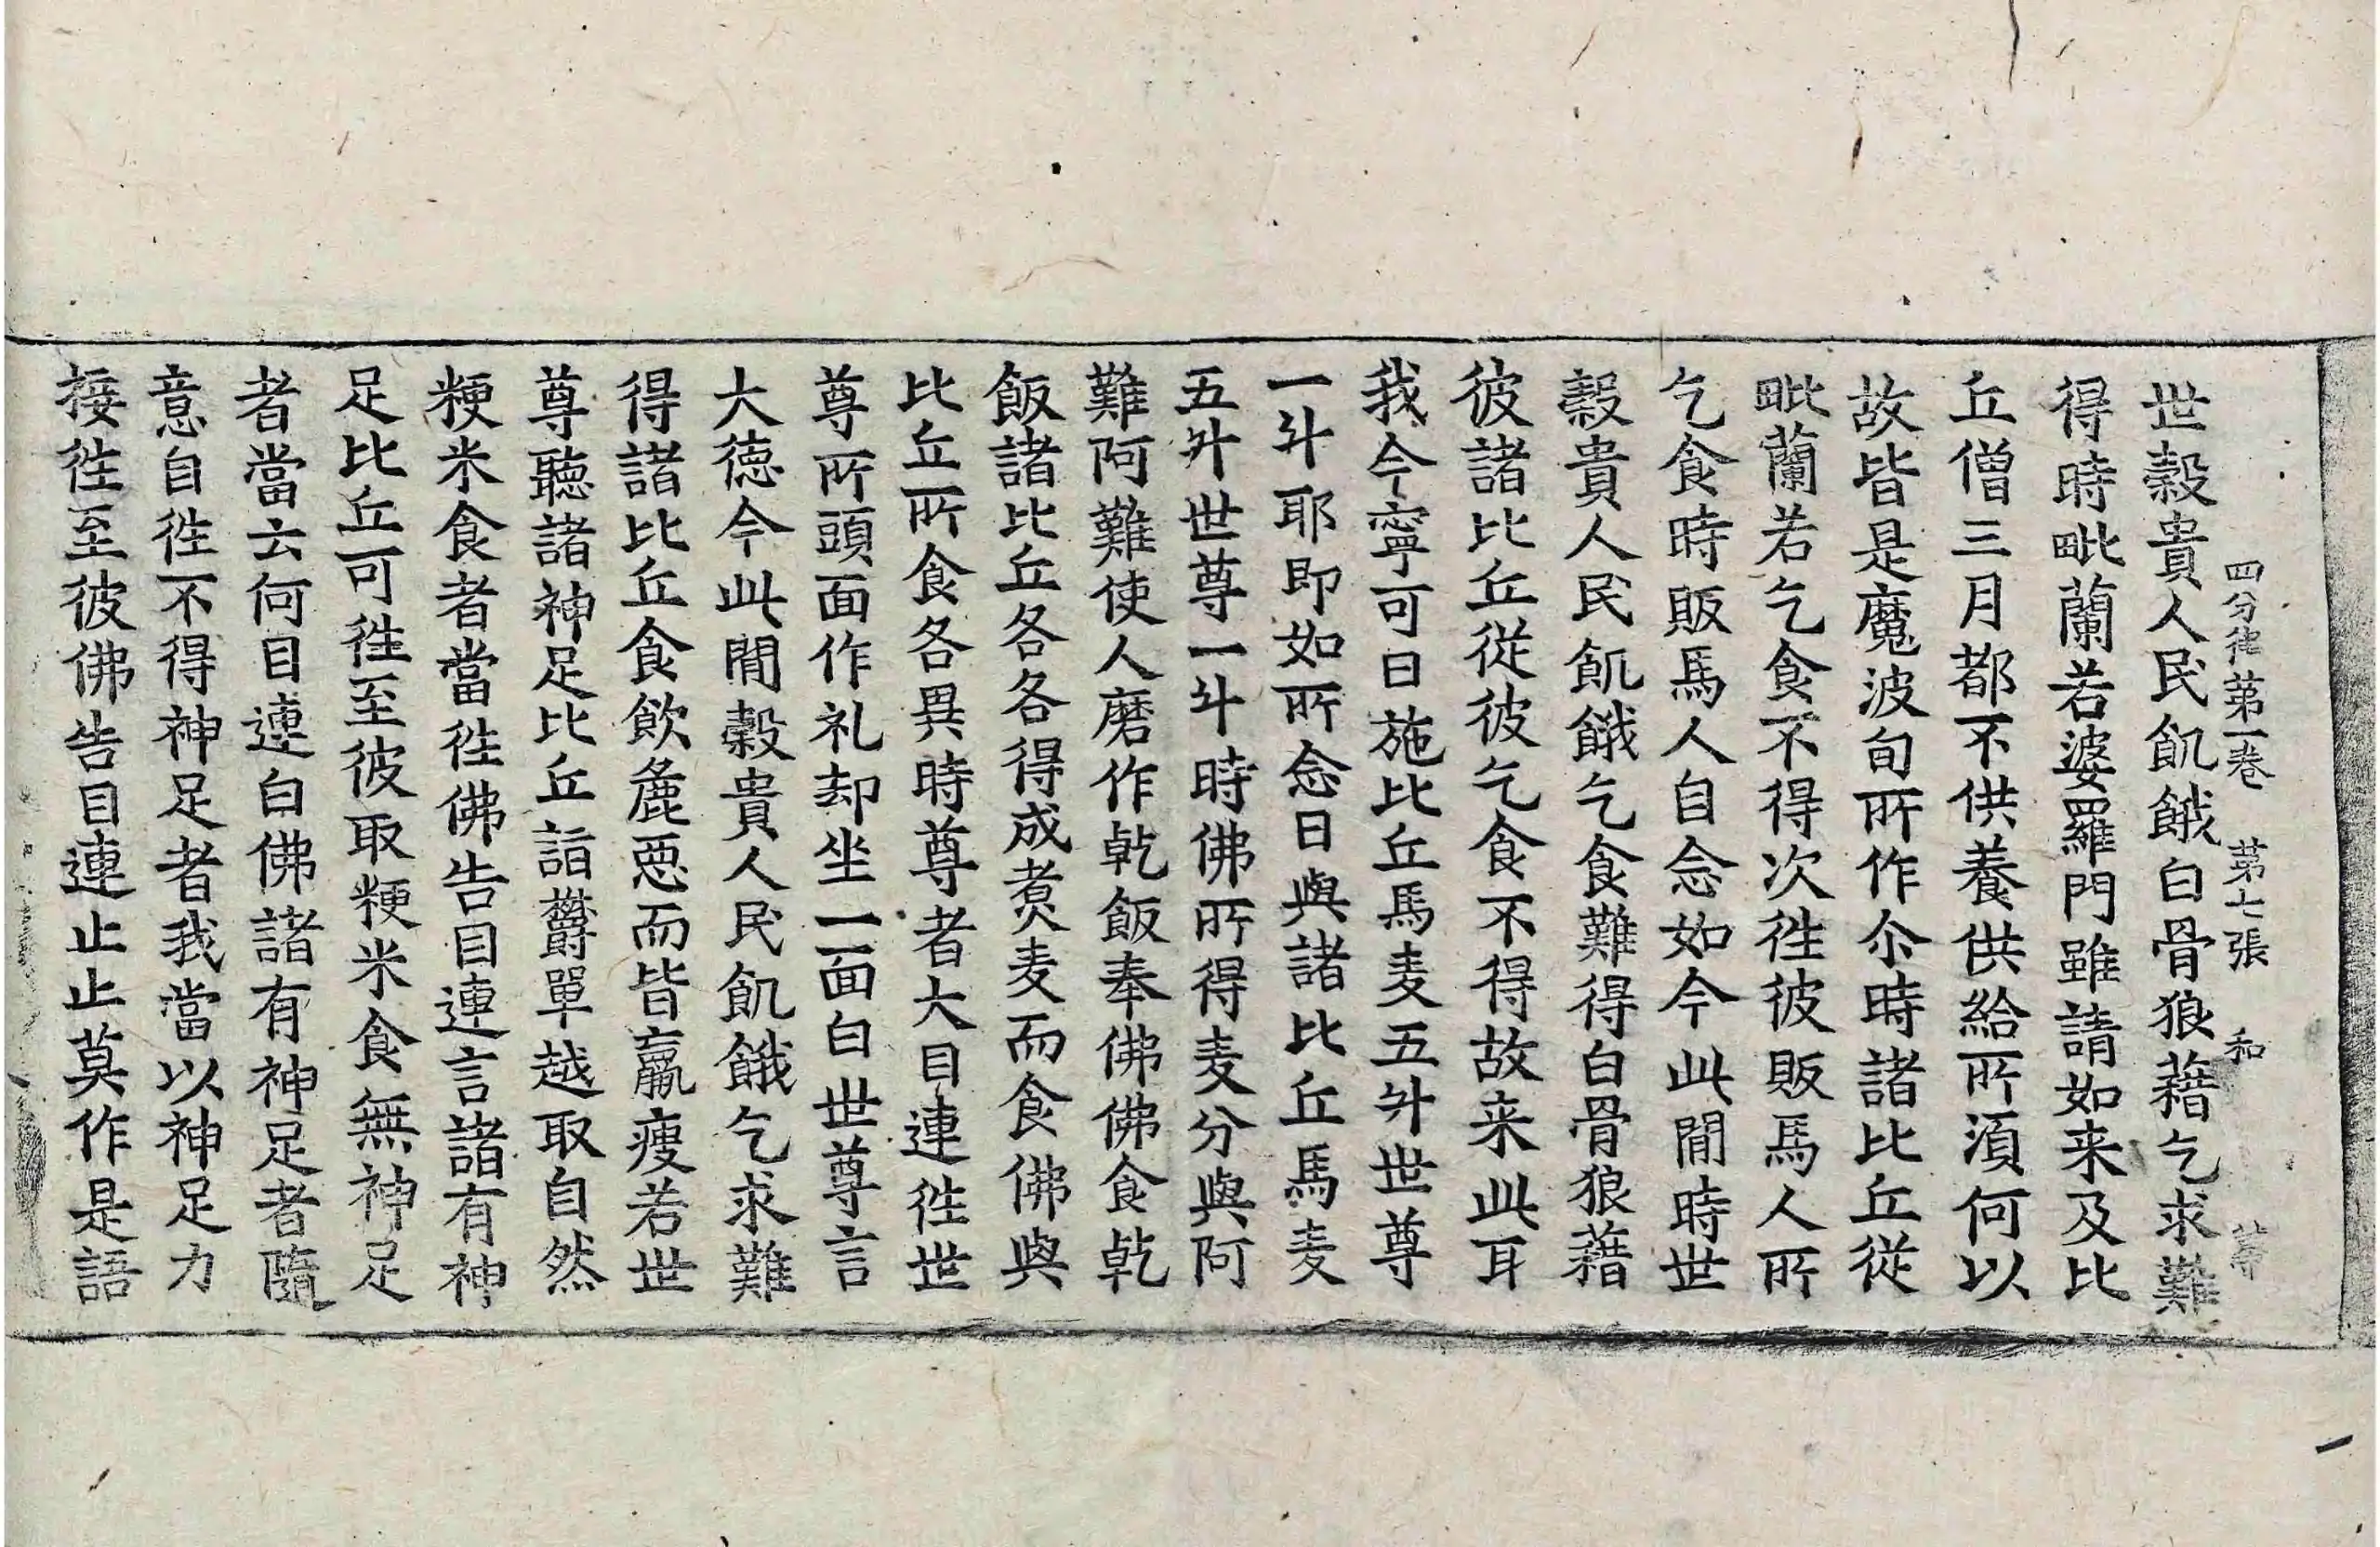 四分律第一卷　第七張　和
世糓貴人民飢餓白骨狼藉乞求難
得時毗蘭若婆羅門雖請如来及比
丘僧三月都不供養供給所湏何以
故皆是魔波旬所作尒時諸比丘從
毗蘭若乞食不得次徃彼販馬人所
乞食時販馬人自念如今此間時世
糓貴人民飢餓乞食難得白骨狼藉
彼諸比丘從彼乞食不得故来此耳
我今寧可日施比丘馬麦五升世尊
一斗耶即如所念日與諸比丘馬麦
五升世尊一斗時佛所得麦分與阿
難阿難使人磨作乾飯奉佛佛食乾
飯諸比丘各各得成煑麦而食佛與
比丘所食各異時尊者大目連徃世
尊所頭面作礼却坐一面白世尊言
大德今此間糓貴人民飢餓乞求難
得諸比丘食飲麁惡而皆羸瘦若世
尊聽諸神足比丘詣欝單越取自然
粳米食者當徃佛告目連言諸有神
足比丘可徃至彼取粳米食無神足
者當云何目連白佛諸有神足者隨
意自徃不得神足者我當以神足力
接徃至彼佛告目連止止莫作是語